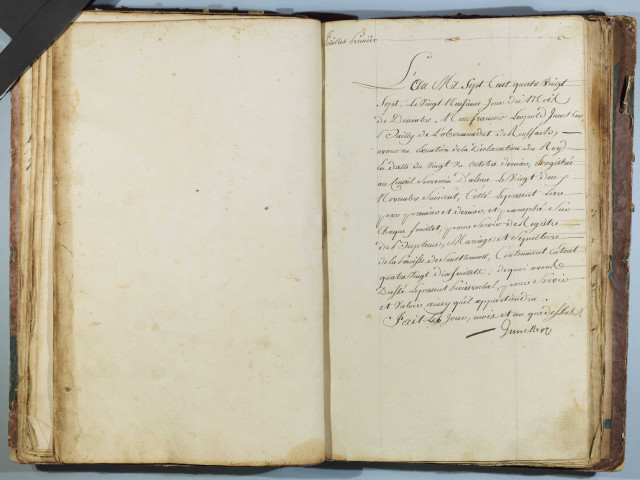 feuillet premier
L'an Mil Sept Cent quatre Vingt
Sept. Le Vingt Neufieme Jour du Mois
de Decembre. Nous françois Leopold
Bailly de L'obermundat de Rouffach,
avons en Execution de la Declaration du Roy
En datte du Vingt Six octobre dernier, Enregistré
au Conseil Souverain D'alsace Le Vingt
Novembre Suivant, Cotté Le present Livre
pour premier et dernier, et paraphé Sur
Chaque feuillet, pour Servir de Registre
de Bapteme, Mariage et Sepulture
de la Paroisse de Contenant En tout
quatre Vingt dix feuillets; de quoi avons
Dressé Le present Procès verbal, pour Servir
et Valoir ainsy qu'il appartiendra.
Fait Les Jour, mois et an que dessus
Juncker